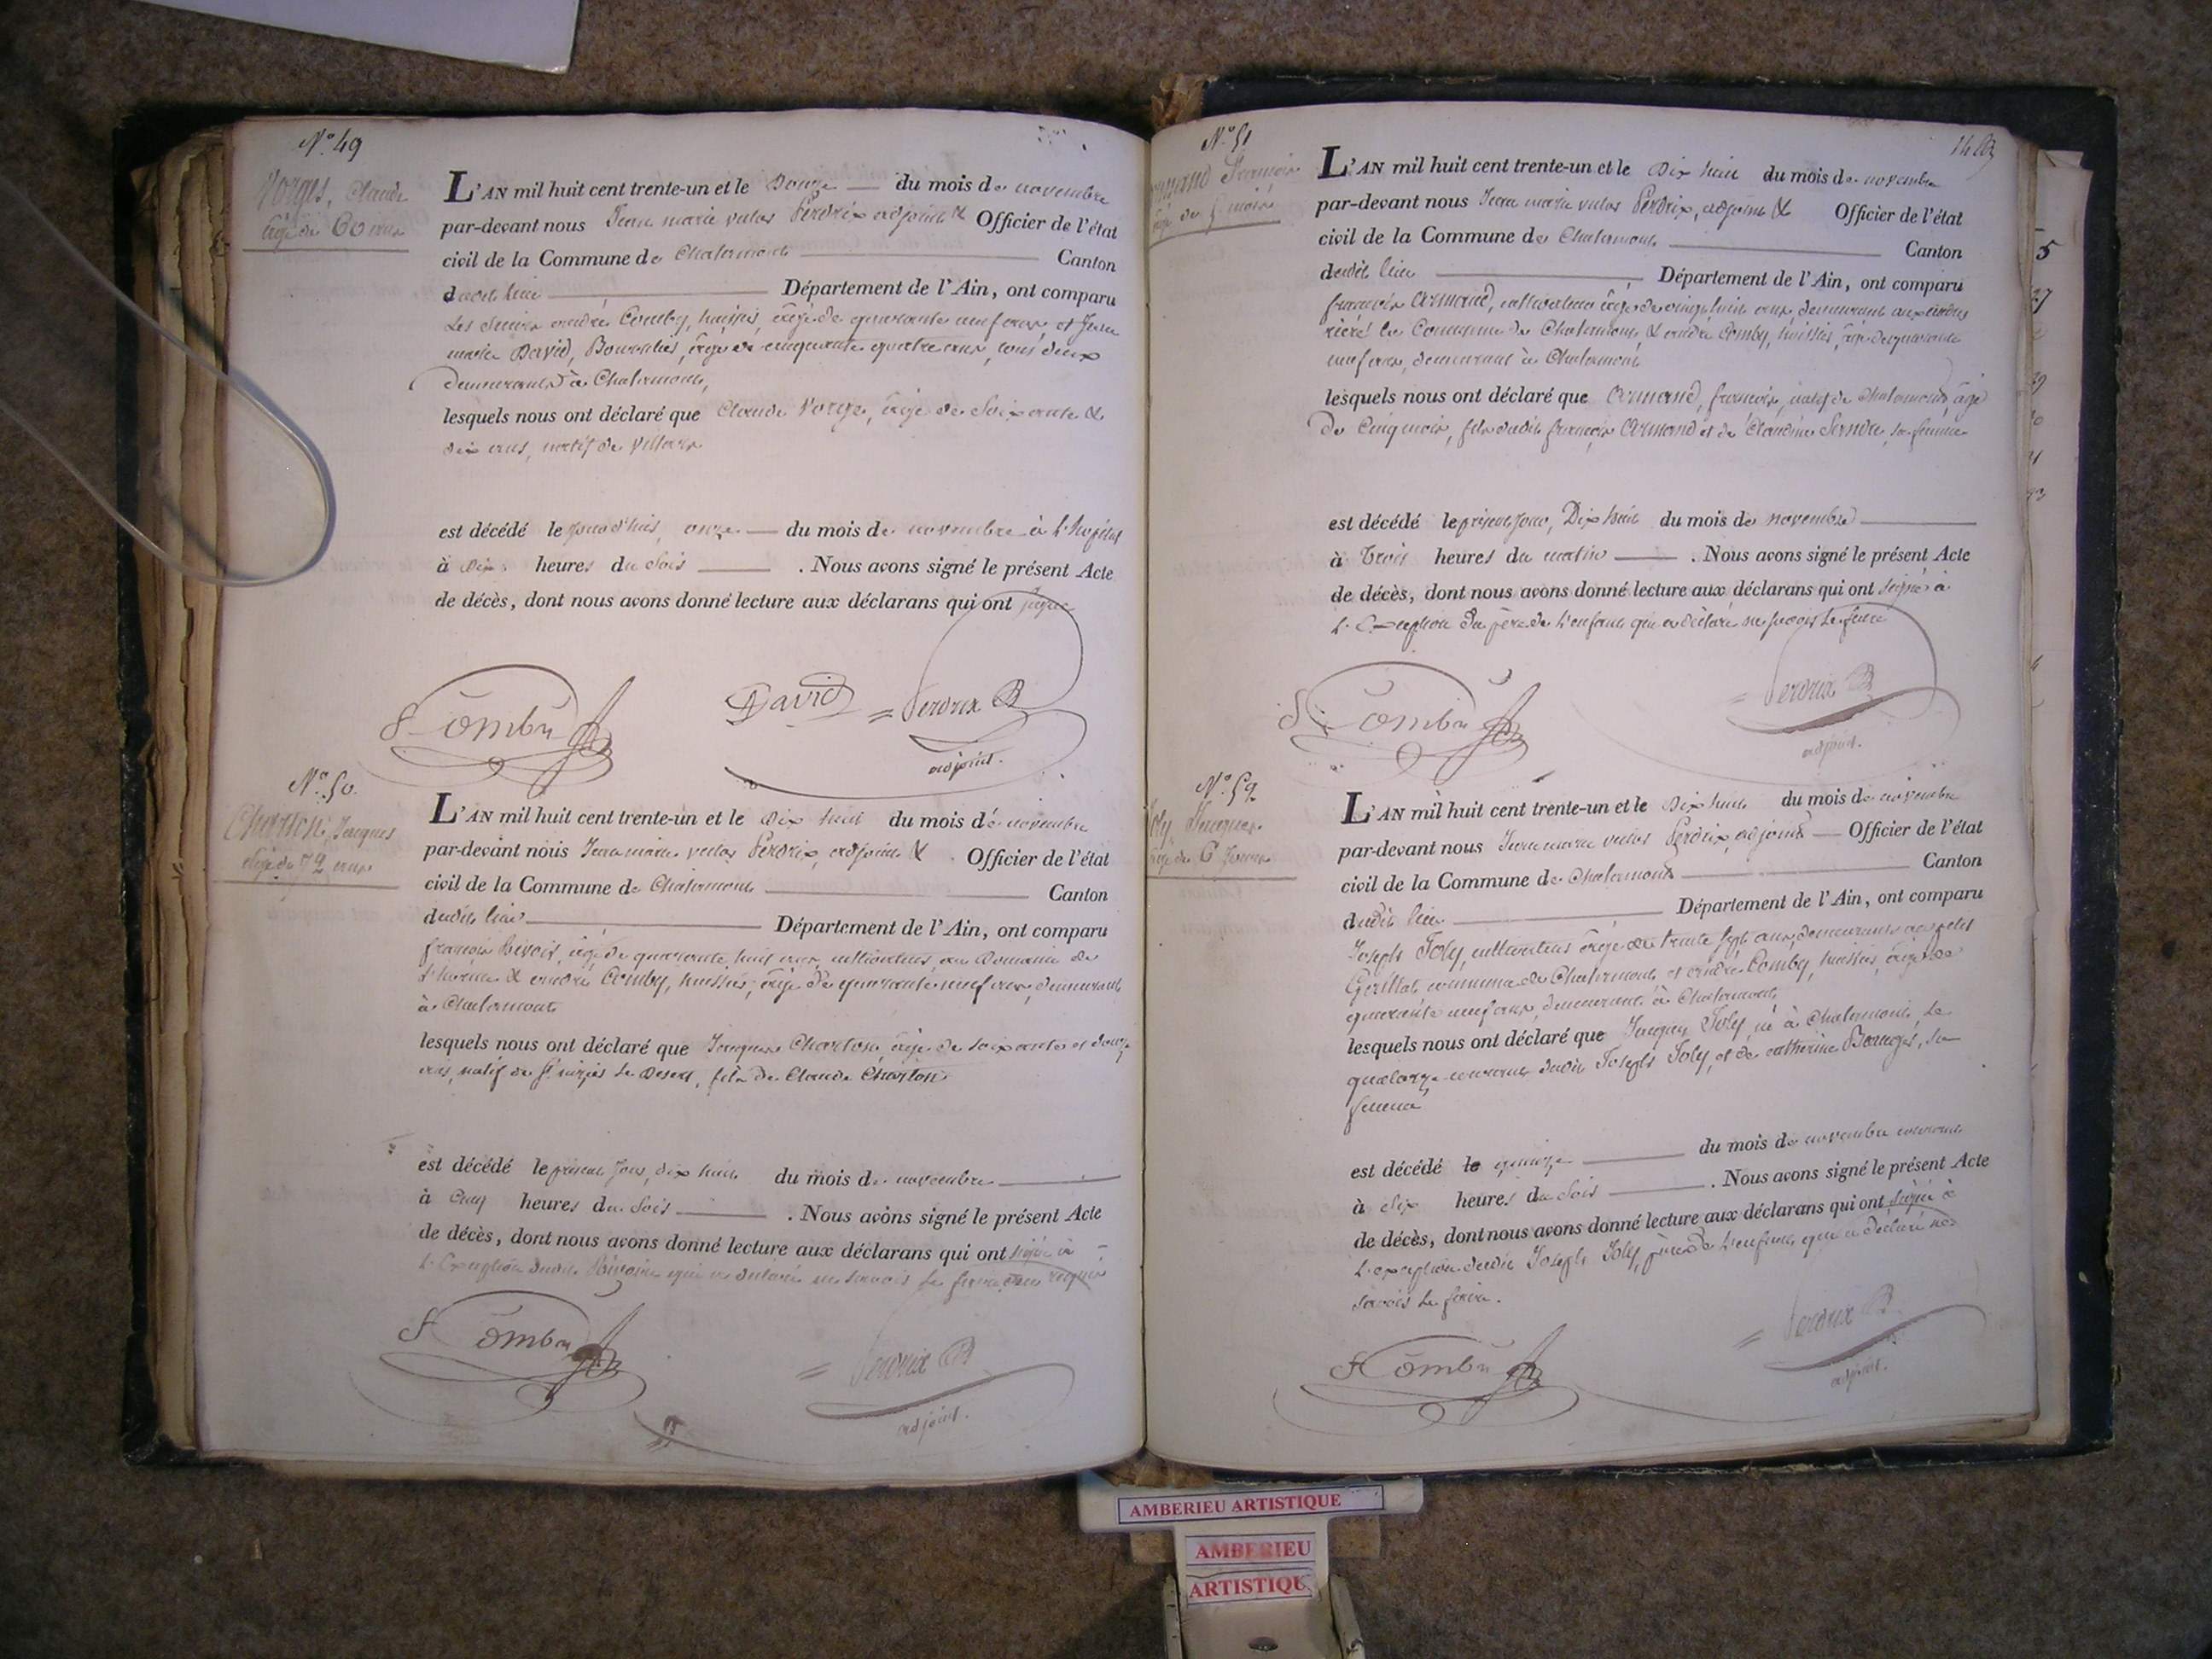 N.° 49
Vorges, Claude
âgé de 60 ans
L'AN mil huit cent trente-un et le Douze du mois de novembre
par-devant nous Jean marie Perdrix adjoint & Officier de l'état
civil de la Commune de Chalamont Canton
dudit lieu Département de l'Ain, ont comparu
Les sieurs andré Comby, huissier, âgé de quarante neuf ans, et Jean
marie David, Bourrelier, âgé de cinquante quatre ans, tous deux
demeurant à Chalamont,
lesquels nous ont déclaré que Claude Vorge, âgé de Soixante &
dix ans, natif de Villars
est décédé le jourd'hui, onze du mois de novembre à l'hopital
à dix heures du soir . Nous avons signé le présent Acte
de décès, dont nous avons donné lecture aux déclarans qui ont signé
Comby David Perdrix
adjoint.
N.° 50.
Charton, Jacques
âgé de 72 ans
L'AN mil huit cent trente-un et le dix huit du mois de novembre
par-devant nous Jean marie Perdrix, adjoint & Officier de l'état
civil de la Commune de Chalamont Canton
dudit lieu Département de l'Ain, ont comparu
françois âgé de quarante huit ans, cultivateur, au Domaine de
& andré Comby, huissier, âgé de quarante neuf ans, demeurant
à Chalamont
lesquels nous ont déclaré que Jacques Charton, âgé de soixante et douze
ans, natif de St. nizier Le Desert, fils de Claude Charton
est décédé le présent jour, dix huit du mois de novembre
à cinq heures du soir . Nous avons signé le présent Acte
de décès, dont nous avons donné lecture aux déclarans qui ont signé à
L'Exception dudit qui a déclaré ne savoir Le faire requis
Comby Perdrix
adjoint.
N.° 51
Armand François
âgé de 5 mois
L'AN mil huit cent trente-un et le dix huit du mois de novembre
par-devant nous Jean marie Perdrix, adjoint & Officier de l'état
civil de la Commune de Chalamont Canton
dudit lieu Département de l'Ain, ont comparu
françois Armand, cultivateur âgé de vingt huit ans demeurant
la Commune de Chalamont, & andré Comby, huissier, âgé de quarante
neuf ans, demeurant à Chalamont
lesquels nous ont déclaré que Armand, françois, natif de Chalamont, âgé
De Cinq mois, fils dudit françois Armand et de Claudine sa femme
est décédé le présent jour, Dix huit du mois de novembre
à trois heures du matin . Nous avons signé le présent Acte
de décès, dont nous avons donné lecture aux déclarans qui ont signé à
L'Exception du père de L'enfant qui a déclaré ne savoir Le faire
Comby Perdrix
adjoint.
N.° 52
Joly Jacques
âgé de 6 Jours
L'AN mil huit cent trente-un et le dix huit du mois de novembre
par-devant nous Jean marie Perdrix, adjoint Officier de l'état
civil de la Commune de Chalamont Canton
dudit lieu Département de l'Ain, ont comparu
Joseph Joly, cultivateur âgé de trente sept ans, demeurant au petit
commune de Chalamont et andré Comby, huissier, âgé de
quarante neuf ans, demeurant à Chalamont,
lesquels nous ont déclaré que Jacques Joly, né à Chalamont, Le
quatorze courant dudit Joseph Joly, et de catherine sa
femme
est décédé le quinze du mois de novembre courant
à dix heures du soir . Nous avons signé le présent Acte
de décès, dont nous avons donné lecture aux déclarans qui ont signé à
L'exception dudit Joseph Joly, père de L'enfant qui a déclaré ne
savoir Le faire.
Comby Perdrix
adjoint.
AMBERIEU ARTISTIQUE
AMBERIEU
ARTISTIQU